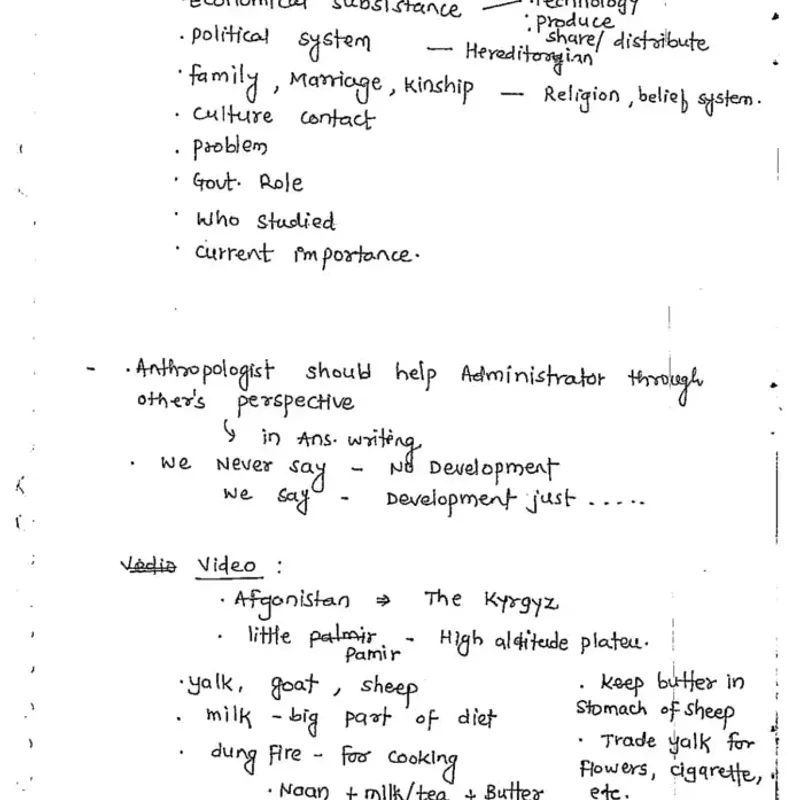 · economical subsistance — · Technology
: produce
share/ distribute
· political system — Hereditorgian
· family , Marriage , kinship — Religion , belief system.
· culture contact
· problem
· Govt. Role
· Who studied
· current importance.
- · Anthropologist should help Administrator through
other's perspective
↳ in Ans. writing
· We Never say - No Development
We say - Development just .....
Vedio Video :
· Afgonistan ⇒ The Kyrgyz
· little palmir - High altitude plateu.
Pamir
· yalk, goat , sheep
· milk - big part of diet
· dung fire - for cooking
· Naan + milk/tea + Butter
· Keep butter in
stomach of sheep
· Trade yalk for
flowers, cigarette,
etc.